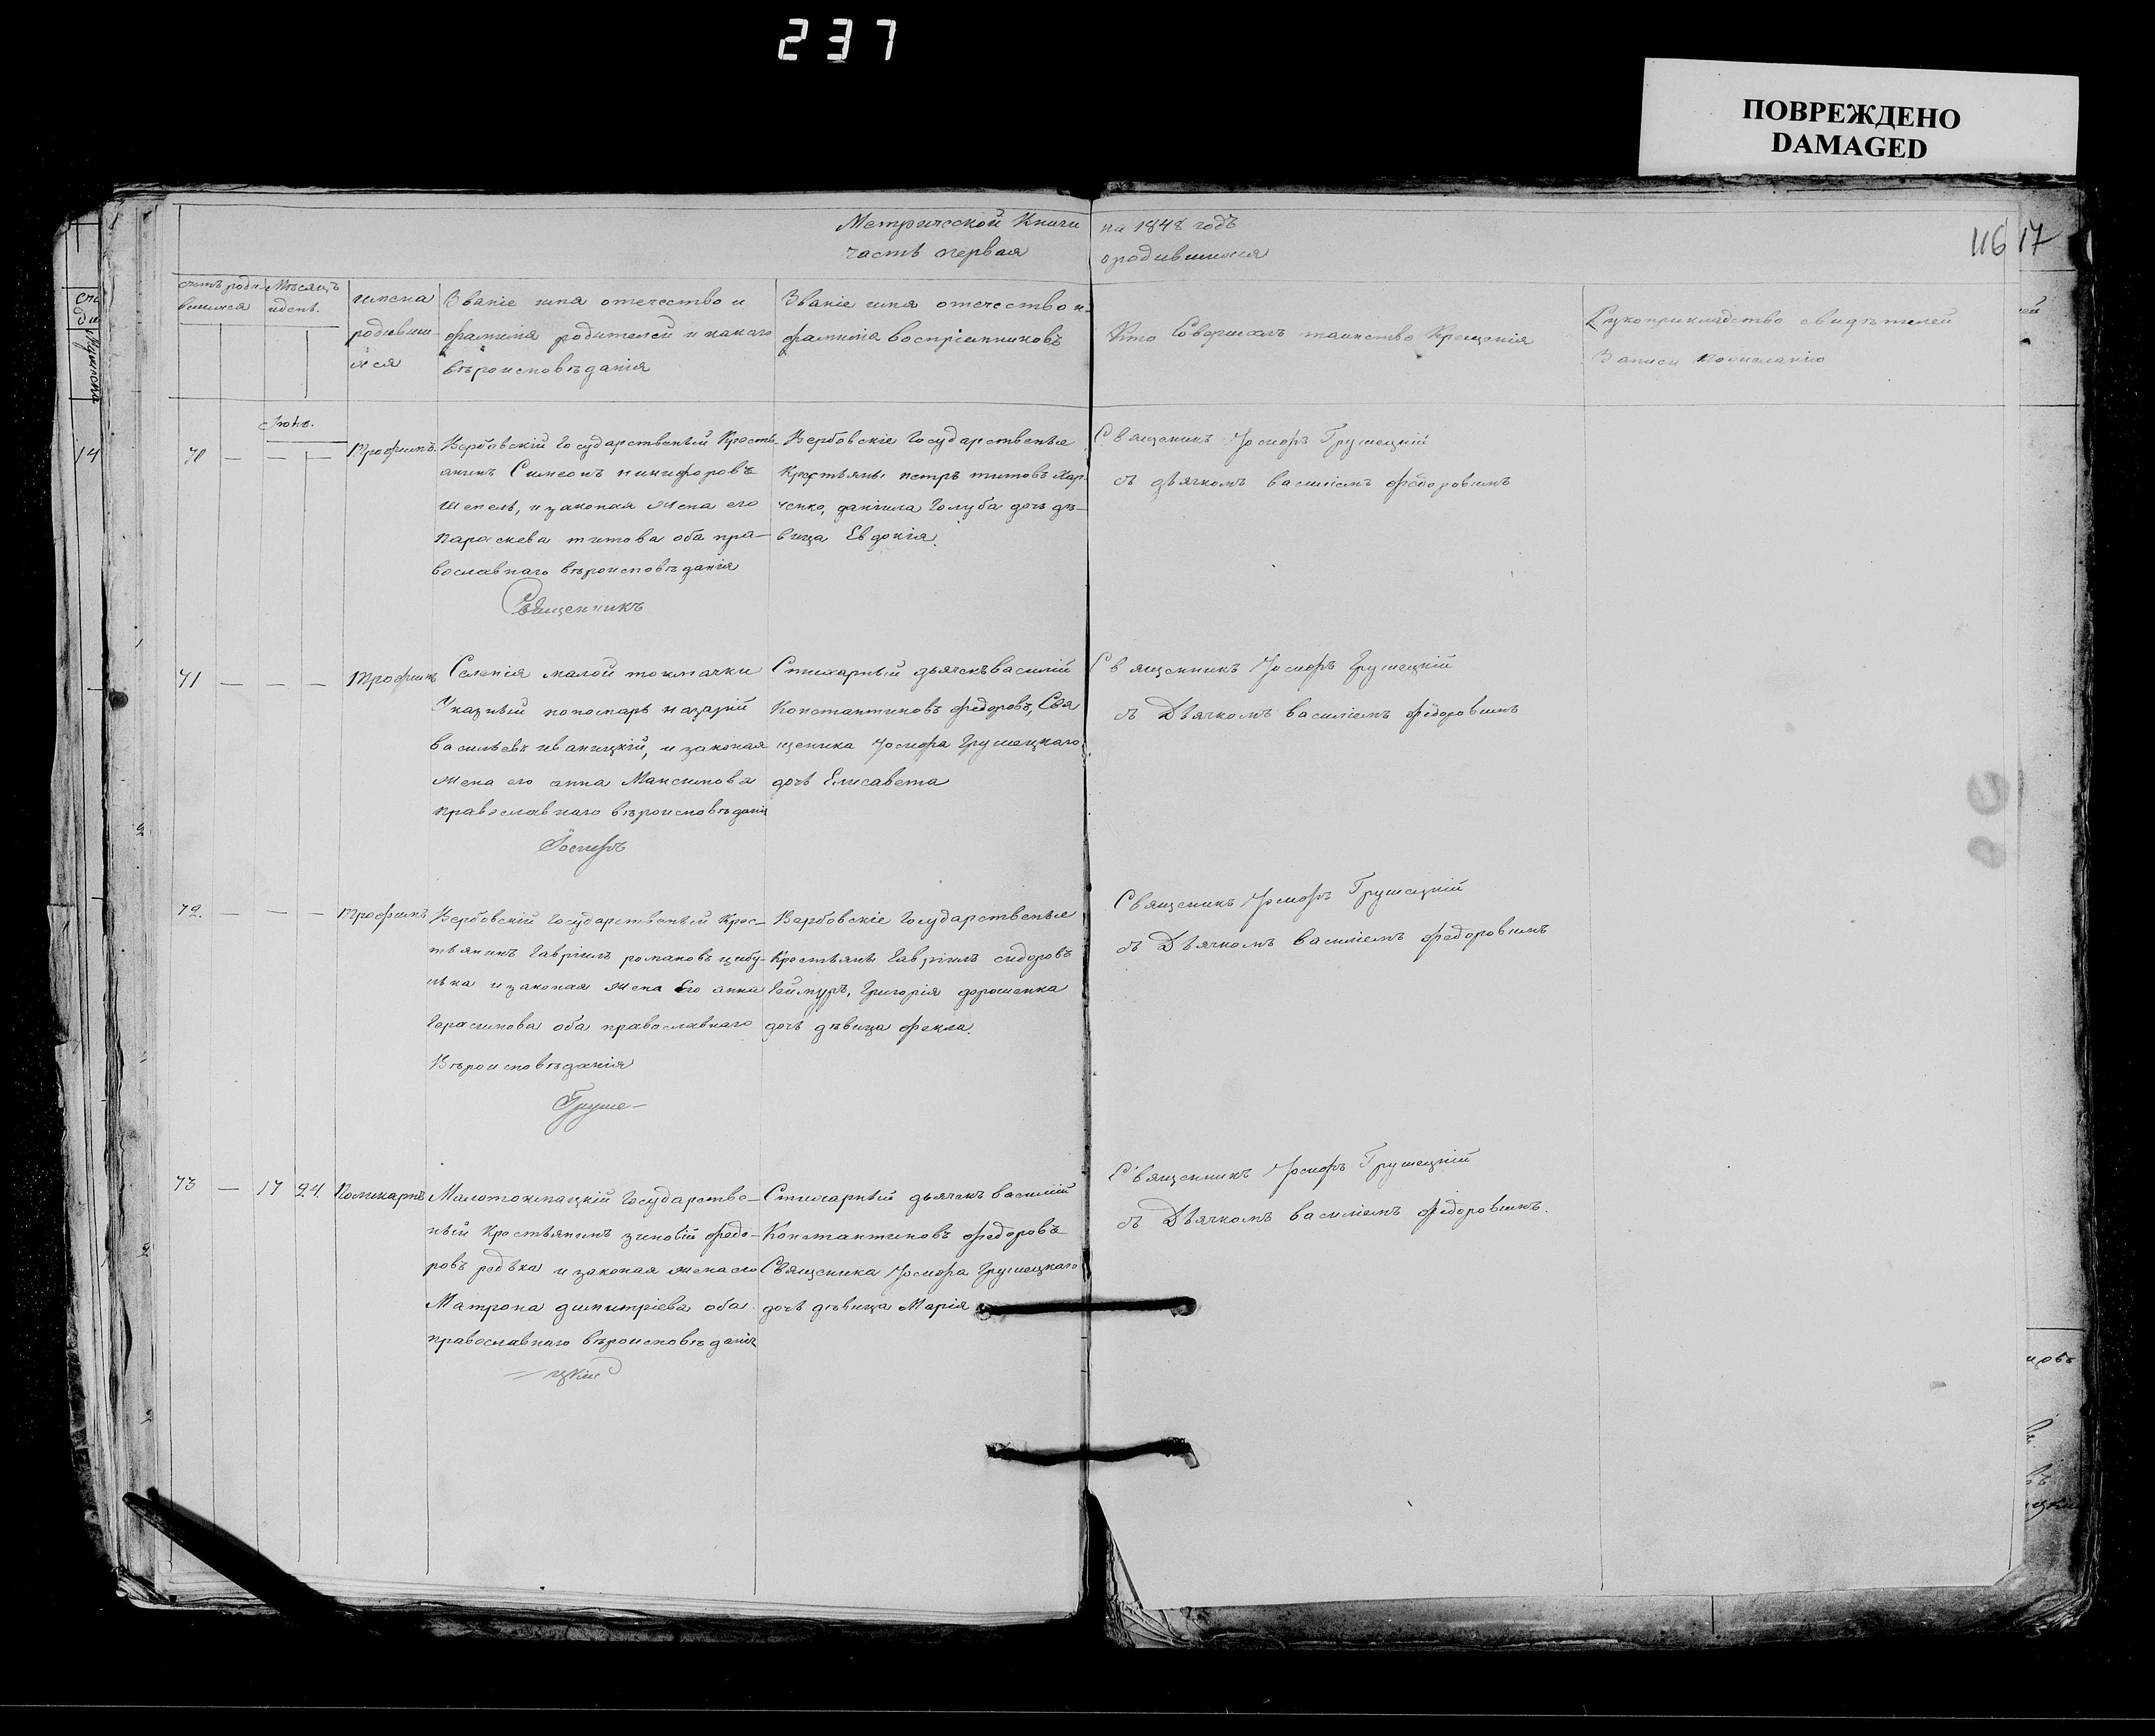 237
ПОВРЕЖДЕНО
DAMAGED
Метрической Книги на 1848 годъ
часть первая о родившихся
116 17
счетъ роди
вшихся
Мѣсяцъ
и день.
имена
родивши
хся
Званіе имя отечество и
фамилія родителей и какого
вѣроисповѣданія
Званіе имя отечество и
фамилія воспріемниковъ
Кто Совершалъ таинство Крещенія
Рукоприкладство свидѣтелей
Записи по желанію
14
Іюнь.
70 —
Трофимъ
Вербовскій Государственый Кресть
янинъ Симеонъ никифоровъ
Шепель, и законая жена его
Параскева титова оба пра—
вославнаго вѣроисповѣданія
Священникъ
Вербовскіе Государственые
Крестьяны петръ титовъ Хар-
ченко, даніила Голуба дочь дѣ—
вица Евдокія.
Священикъ Іосифъ Грушецкій
съ дьячкомъ василіемъ федоровымъ
71 — — —
Трофимъ
Селенія малой токмачки
Указный пономарь назарій
васильевъ иваницкій, и законая
жена его анна Максимова
православнаго вѣроисповѣданія
Іосифъ
Стихарный дьячекъ василій
Константиновъ федоровъ, Свя
щеника Іосифа Грушецкаго
дочь Елисавета
Священникъ Іосифъ Грушецкій
съ Дьячкомъ василіемъ федоровымъ
72. — — —
Трофимъ
Вербовскій Государственый Крес—
тьянинъ Гавріилъ романовъ цибу-
лька и законая жена Его анна
Герасимова оба православнаго
Вѣроисповѣданія
Груше—
Вербовскіе Государственые
Крестьяны Гавріилъ сидоровъ
Григорія дорошенка
дочь дѣвица фекла.
Священикъ Іосифъ Грушецкій
съ Дьячкомъ василіемъ федоровымъ
73 — 17 24.
Поликарпъ
Малотокмацкій Государстве—
ный Крестьянинъ зиновій федо—
ровъ редька и законая жена его
Матрона димитріева оба
православнаго вѣроисповѣданія
—цкій
Стихарный дьячекъ василій
Константиновъ федоровъ
Священика Іосифа Грушецкаго
дочь дѣвица Марія
Священникъ Іосифъ Грушецкій
съ Дьячкомъ василіемъ федоровымъ.